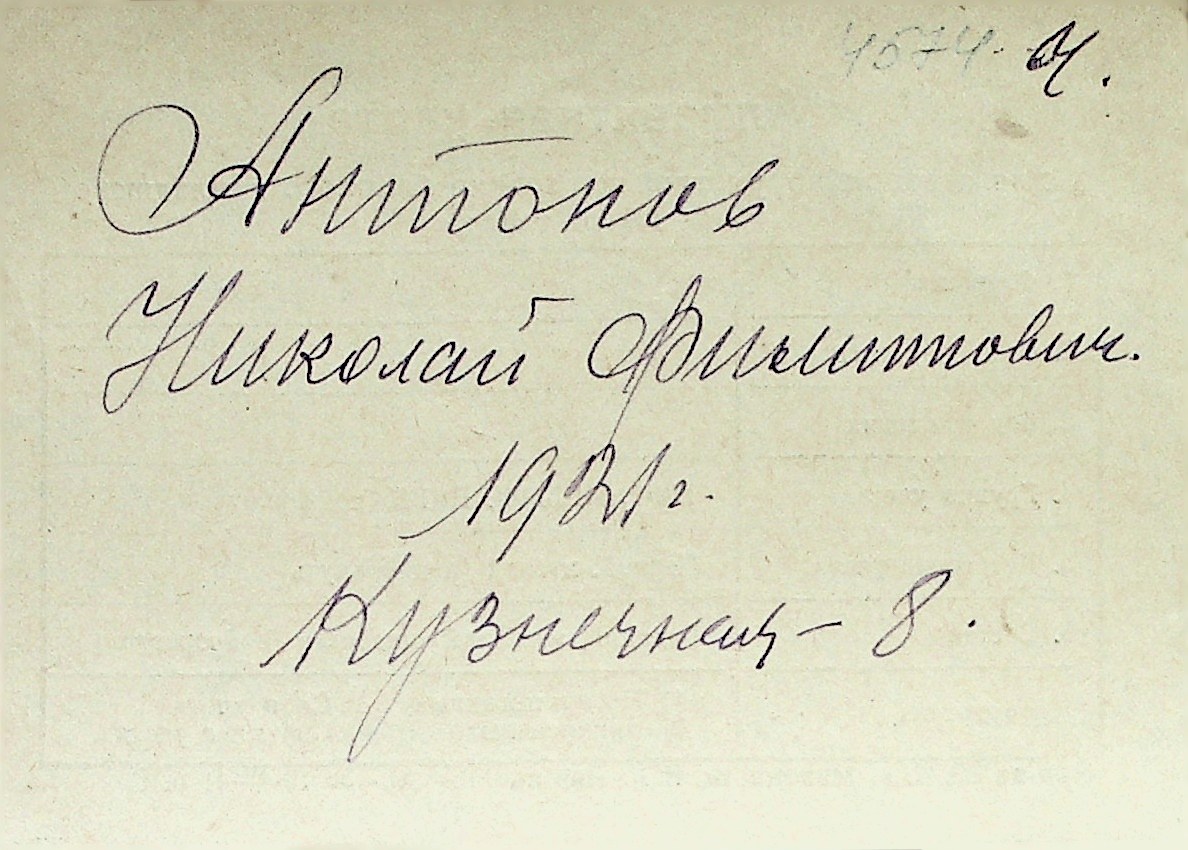 4574 Ч.
Антонов
Николай Филиппович.
1921 г.
Кузнечная - 8.